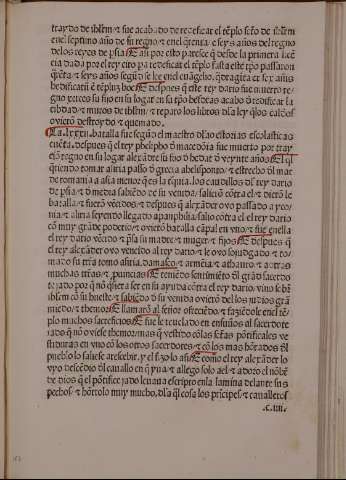 traydo de iħrlm ⁊ fue acabado de reedeficar el tẽplo sc̃to de iħrlm
en el septimo año de su regno ⁊ en el q̃renta ⁊ seys años del regno
de los reyes de p̃sia Et asi por esto paresce q̃ desde la primera licẽ
cia dada por el rey ciro pa redeficar el tẽplo fasta este tp̃o passaron
q̃rẽta ⁊ seys años segũd se lee en el euãgelio. quadragita ⁊ sex añis
hedificatũ ẽ tẽplũ hoc Et despues q̃ este rey dario fue muerto re-
gno xerces su fijo en su logar en su tp̃o hesdras acabo d̃ redificar la
cibdad ⁊ muros de iħrlm ⁊ reparo los libros d̃la ley q̃los caldeos
ouierõ destroydo ⁊ quemado.
La .lxxii. batalla fue segũd el maestro d̃las estorias escolasticas
cuẽta. despues q̃ el rey phelipho d̃ macedõia fue muerto por tray
cõ regno en su logar alexãdre su fijo d̃ hedat d̃ veynte años Et q̃
riendo tomar a siria passo d̃ grecia abelisponto ⁊ estrecho d̃l mar
de romania a asia menor q̃ es la turquia. los caudillos d̃l rey dario
de p̃sia ⁊ d̃ media sabiẽdo de su venida. salierõ cõtra el ⁊ dierõ le
batalla ⁊ fuerõ vẽcidos ⁊ despues q̃ alexãder ouo passado a yco-
nia ⁊ a liria seyendo llegado a panphilia salio cõtra el el rey dario
cõ muy grãde poderio ⁊ ouierõ batalla cãpal en vno ⁊ fue en ella
el rey dario vẽcido ⁊ p̃sa su madre ⁊ muger ⁊ fijos Et despues q̃
el rey alexãder ouo vencido al rey dario ⁊ le ouo sojudgado ⁊ to-
mado su trr̃a tomo asiria, damasco, ⁊ armẽia ⁊ athauro ⁊ a otras
muchas trr̃as ⁊ ꝓuincias Et teniẽdo sentimiẽto d̃l grãd sacerdo
te jado por q̃ nõ quiso ser en su ayuda cõtra el rey dario, vino se pa
iħrlm cõ su hueste ⁊ sabiẽdo de su venida ouierõ del los iudios grã
miedo ⁊ themor Et llamarõ al señor ofreciẽdo ⁊ faziẽdole en el tẽ-
plo muchos sacreficios Et fue le reuelado en ensueños al sacerdote
jado q̃ nõ ouiese themor mas q̃ vestido cõ las sc̃tas põtificales ve
stiduras en vno cõ los otros sacerdotes ⁊ cõ los mas hõrados d̃l
pueblo lo saliese a rescebir. y el fizo lo asi Et como el rey alexãder lo
vyo descẽdio d̃l cauallo en q̃ yua ⁊ allego solo a el ⁊ adoro el nõbre
de dios q̃ el põtifice jado leuaua escripto en la lamina delante sus
pechos ⁊ hõrrolo muy mucho, d̃la q̃l cosa los prĩcipes ⁊ caualleros
.c.iiii.